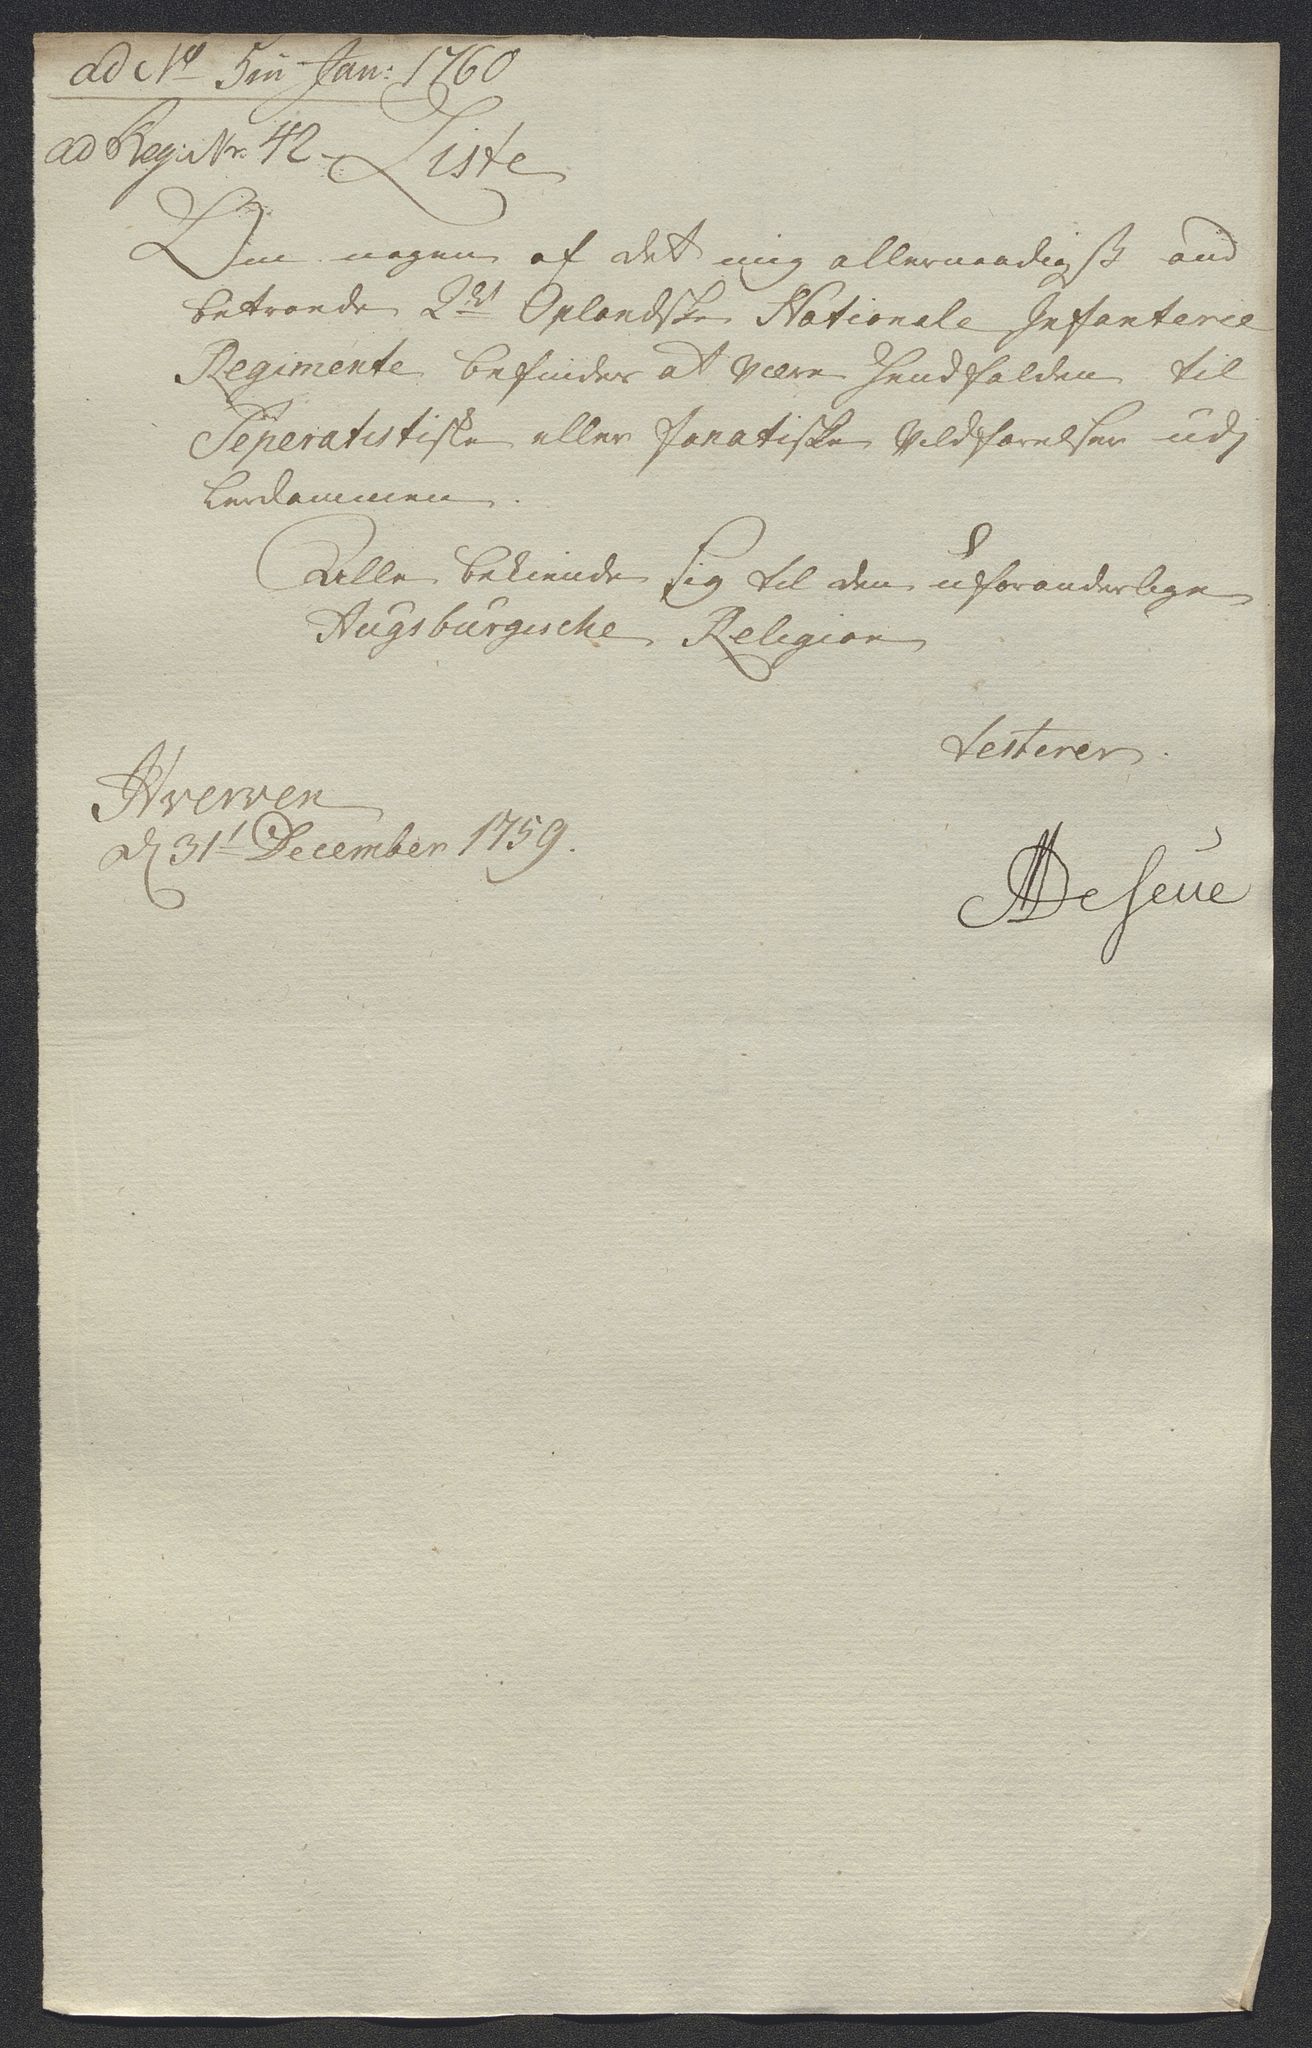 ad No 5 in Jan: 1760
ad Reg: Nr. 42
Liste
Om nogen af det mig allernaadigst an
betroede 2det Oplandske Nationale Infanterie
Regimente befindes at være henfalden til
Seperatistiske eller fanatiske Vildfarelser udj
Lerdommen.
Alle bekiende sig til den uforanderlige
Augsburgische Religion
testerer.
Hverven
d 31t December 1759.
De Seue